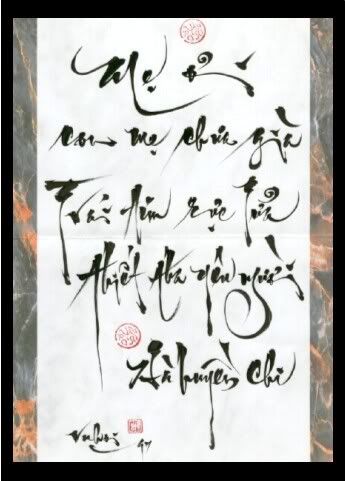 Mẹ ơi
con mẹ chưa già
Trái tim rực lửa
thiết tha yêu người
Hà Huyền Chi
Vũ Hối
97